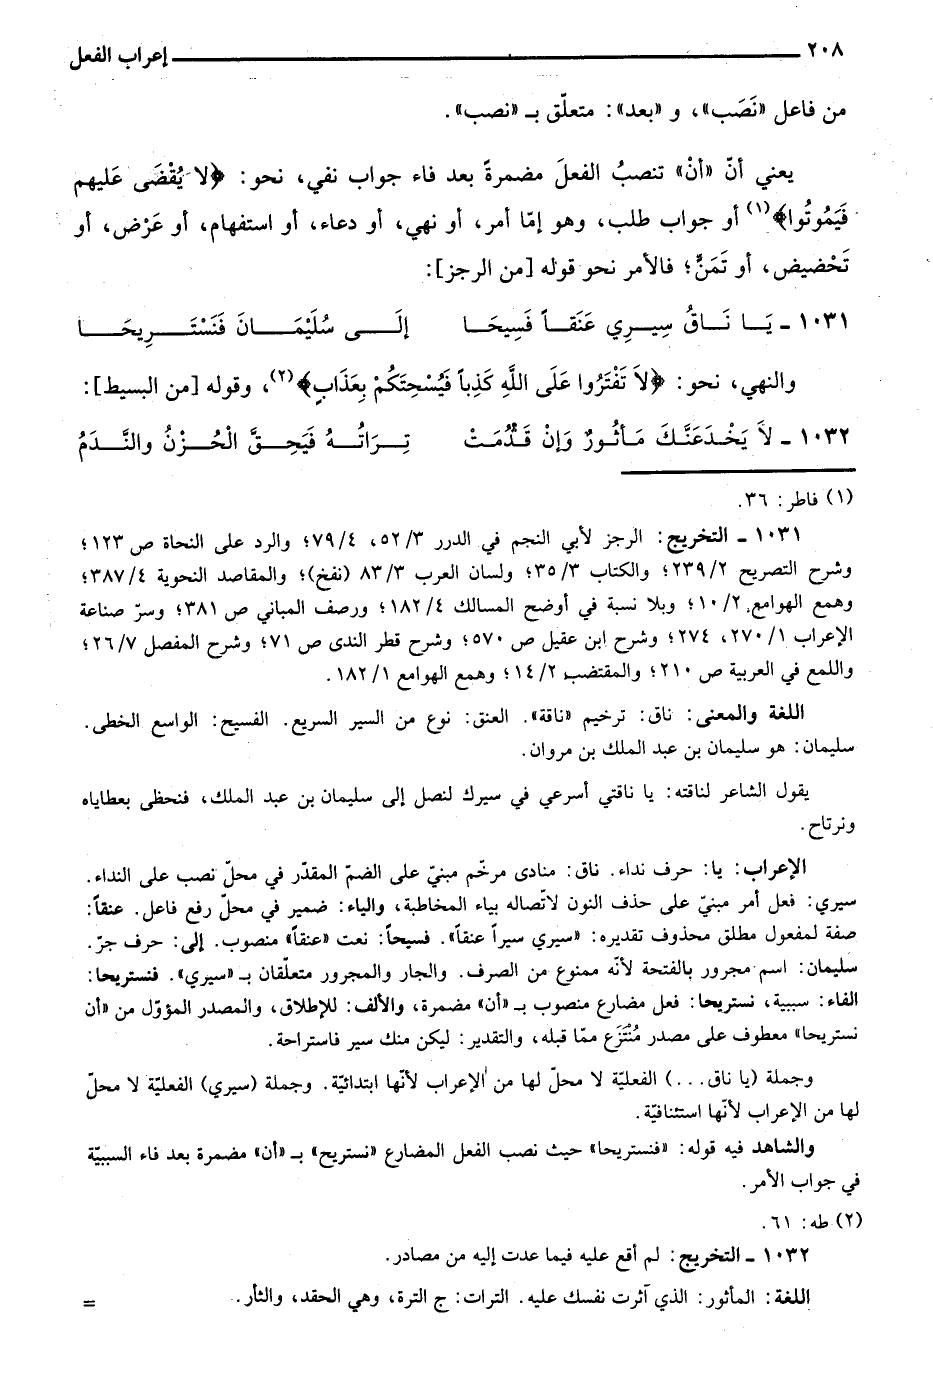 ٢٠٨ إعراب الفعل
من فاعل «نَصَب»، و «بعد»: متعلّق بـ «نصب».
يعني أنّ «أنْ» تنصبُ الفعلَ مضمرةً بعد فاء جواب نفي، نحو: ﴿لا يُقْضَى عَليهم
فَيَمُوتُوا﴾(١) أو جواب طلب، وهو إمّا أمر، أو نهي، أو دعاء، أو استفهام، أو عَرْض، أو
تَحْضيض، أو تَمَنٍّ؛ فالأمر نحو قوله [من الرجز]:
١٠٣١ ـ يَـا نَـاقُ سِيرِي عَنَقـاً فَسِيحَـا إلَـى سُلَيْمَـانَ فَنَسْتَـرِيحَـا
والنهي، نحو: ﴿لاَ تَفْتَرُوا عَلَى اللَّهِ كَذِباً فَيُسْحِتَكُمْ بِعَذَابٍ﴾(٢)، وقوله [من البسيط]:
١٠٣٢ ـ لاَ يَخْدَعَنَّكَ مَأثُورٌ وَإنْ قَدُمَتْ تِرَاتُهُ فَيَحِقَّ الْحُزْنُ والنَّدَمُ
(١) فاطر: ٣٦.
١٠٣١ ـ التخريج: الرجز لأبي النجم في الدرر ٥٢/٣، ٧٩/٤؛ والرد على النحاة ص ١٢٣؛
وشرح التصريح ٢٣٩/٢؛ والكتاب ٣٥/٣؛ ولسان العرب ٨٣/٣ (نفخ)؛ والمقاصد النحوية ٣٨٧/٤؛
وهمع الهوامع ١٠/٢؛ وبلا نسبة في أوضح المسالك ١٨٢/٤؛ ورصف المباني ص ٣٨١؛ وسرّ صناعة
الإعراب ٢٧٠/١، ٢٧٤؛ وشرح ابن عقيل ص ٥٧٠؛ وشرح قطر الندى ص ٧١؛ وشرح المفصل ٢٦/٧؛
واللمع في العربية ص ٢١٠؛ والمقتضب ١٤/٢؛ وهمع الهوامع ١٨٢/١.
اللغة والمعنى: ناق: ترخيم «ناقة». العنق: نوع من السير السريع. الفسيح: الواسع الخطى.
سليمان: هو سليمان بن عبد الملك بن مروان.
يقول الشاعر لناقته: يا ناقتي أسرعي في سيرك لنصل إلى سليمان بن عبد الملك، فنحظى بعطاياه
ونرتاح.
الإعراب: يا: حرف نداء. ناق: منادى مرخّم مبنيّ على الضمّ المقدّر في محلّ نصب على النداء.
سيري: فعل أمر مبنيّ على حذف النون لاتّصاله بياء المخاطبة، والياء: ضمير في محلّ رفع فاعل. عنقاً:
صفة لمفعول مطلق محذوف تقديره: «سيري سيراً عنقاً». فسيحاً: نعت «عنقاً» منصوب. إلى: حرف جرّ.
سليمان: اسم مجرور بالفتحة لأنّه ممنوع من الصرف. والجار والمجرور متعلّقان بـ «سيري». فنستريحا:
الفاء: سببية، نستريحا: فعل مضارع منصوب بـ «أن» مضمرة، والألف: للإطلاق، والمصدر المؤوّل من «أن
نستريحا» معطوف على مصدر مُنْتَزَع ممّا قبله، والتقدير: ليكن منك سير فاستراحة.
وجملة (يا ناق...) الفعليّة لا محلّ لها من الإعراب لأنّها ابتدائيّة. وجملة (سيري) الفعليّة لا محلّ
لها من الإعراب لأنّها استئنافيّة.
والشاهد فيه قوله: «فنستريحا» حيث نصب الفعل المضارع «نستريح» بـ «أن» مضمرة بعد فاء السببيّة
في جواب الأمر.
(٢) طه: ٦١.
١٠٣٢ ـ التخريج: لم أقع عليه فيما عدت إليه من مصادر.
اللغة: المأثور: الذي آثرت نفسك عليه. الترات: ج الترة، وهي الحقد، والثأر. =